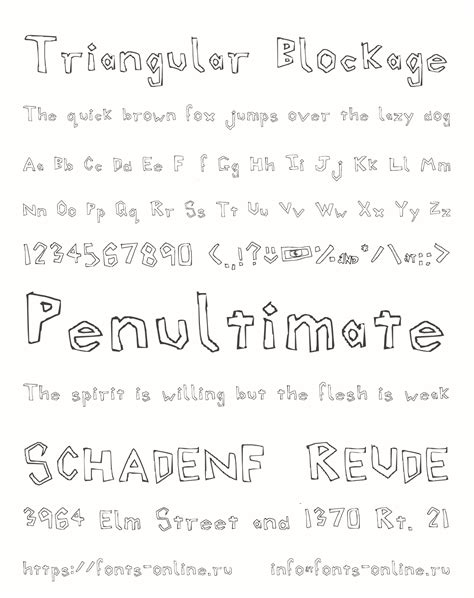 Triangular Blockage
The quick brown fox jumps over the lazy dog
Aa Bb Cc Dd Ee F f Gg Hh Ii Jj Kk Ll Mm
Nn Oo Pp Qq Rr Ss Tt Uu Vv Ww Xx Yy Zz
1234567890 <,.!?$%AND*/\AT:;>
Penultimate
The spirit is willing but the flesh is weak
SCHADENF REUDE
3964 Elm Street and 1370 Rt. 21
https://fonts-online.ru info@fonts-online.ru